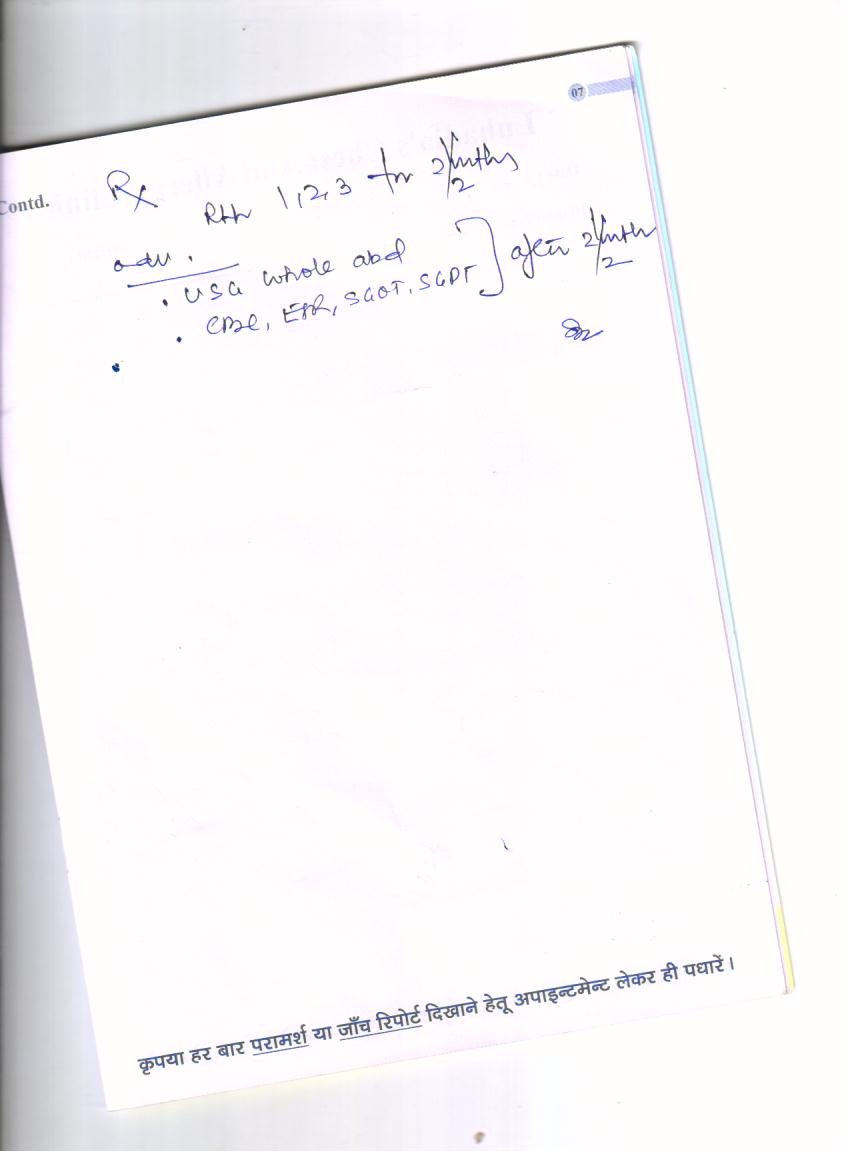 07
Contd.
Rx
Rth 1, 2, 3 for 2 1/2 mths
adv.
. USG whole abd
. CBC, ESR, SGOT, SGPT ] after 2 1/2 mth
कृपया हर बार परामर्श या जाँच रिपोर्ट दिखाने हेतू अपाइन्टमेन्ट लेकर ही पधारें।